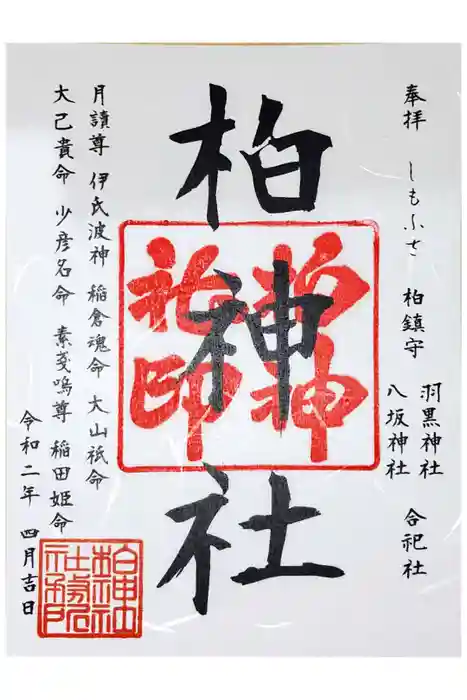 奉拝 しもふさ 柏鎮守 羽黒神社 合祀社
八坂神社
柏神社
柏神
社印
月讀尊 伊氐波神 稲倉魂命 大山祇命
大己貴命 少彦名命 素戔嗚尊 稲田姫命
令和二年 四月吉日
柏神社
社務所
之印